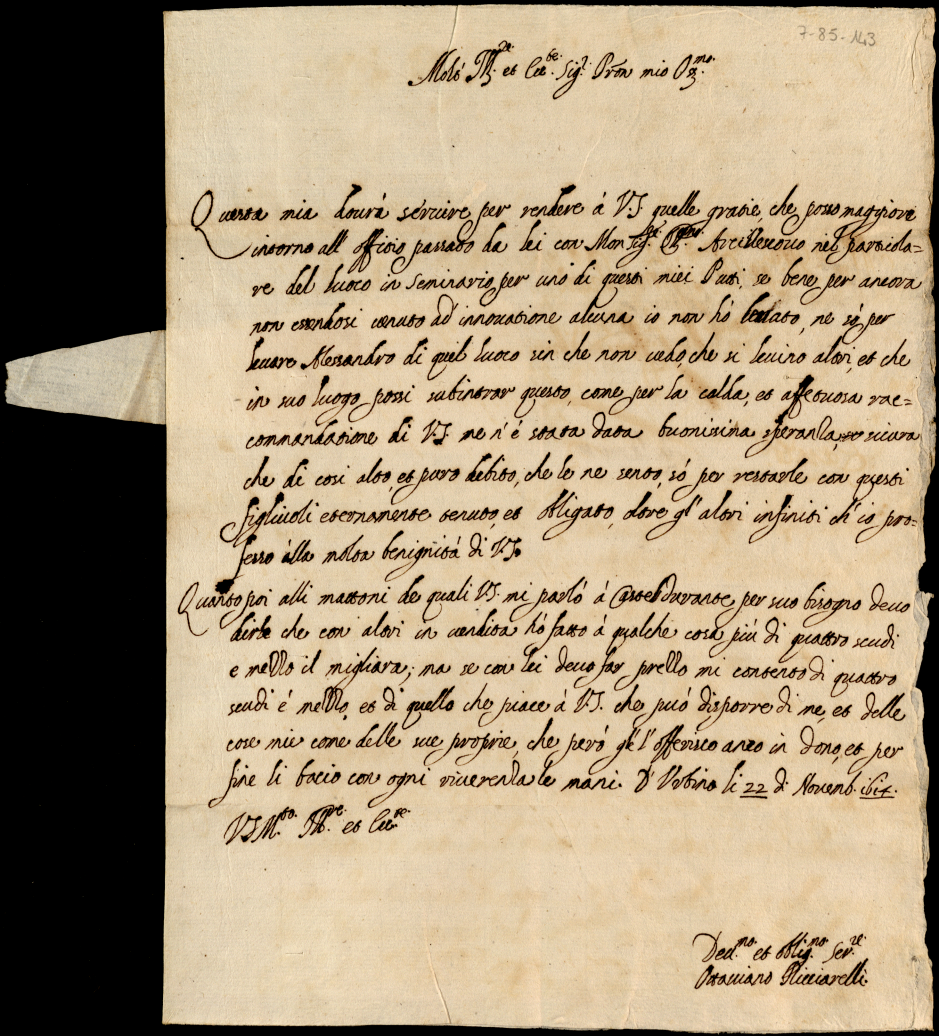 7-85-143
Molt' Ill.re et Ecc.te Sig.r Pron mio Oss.mo
Questa mia dourà seruire per rendere à V.S. quelle gratie, che posso maggiori
intorno all' offitio passato da lei con Monsig.r Arciuescouo nel particola=
re del luoco in Seminario per uno di questi miei Putti, se bene per ancora
non essendosi uenuto ad innouatione alcuna io non hò leuato, ne sò per
leuare Alessandro di quel luoco sin che non uedo, che si leuino altri, et che
in suo luogo possi subintrar questo, come per la calda, et affettuosa rac=
commandatione di V.S. me n'è stata data buonissima speranza, sicura
che di cosi alto, et puro debito, che le ne sento, sò per restarle con questi
figliuoli eternamente tenuto, et obligato, oltre gl' altri infiniti ch' io pro=
fesso alla molta benignità di V.S.
Quanto poi alli mattoni de quali V.S. mi parlò à Castel Durante per suo bisogno deuo
dirle che con altri in uendita hò fatto à qualche cosa più di quattro scudi
e mezzo il migliara; ma se con lei deuo far prezzo mi contento di quattro
scudi è mezzo, et di quello che piace à V.S. che può disporre di me, et delle
cose mie come delle sue proprie, che però gle l'offerisco anco in dono, et per
fine li bacio con ogni riuerenza le mani. D' Vrbino li 22 di Nouemb. 1614.
V.S. M.to Ill.re et Ecc.te
Ded.mo et oblig.mo Ser.re
Ottauiano Ricciarelli.